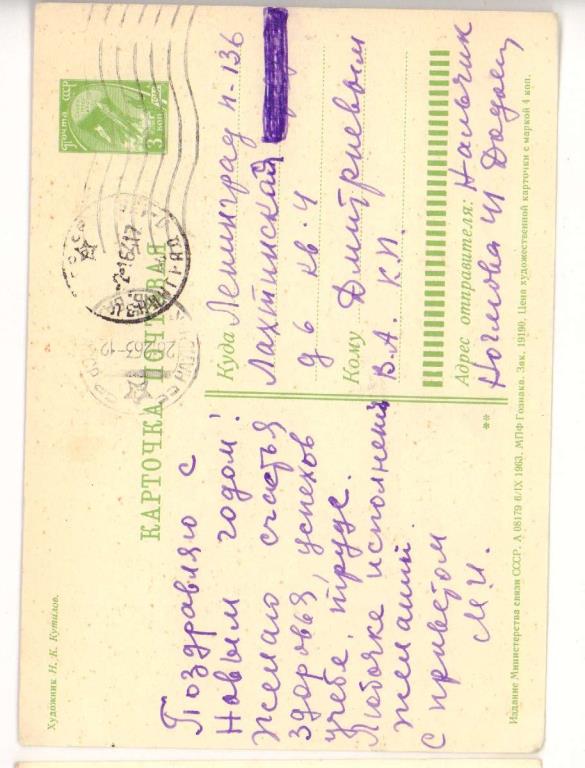 Художник Н. К. Кутилов.
КАРТОЧКА ПОЧТОВАЯ
Поздравляю с
Новым годом!
Желаю счастья
здоровья, успехов
учебе, труде.
Любочке исполнения
желаний.
С приветом
М. И.
Почта СССР
3 коп
Куда Ленинград П-136
Лахтинская
д 6 кв. 4
Кому Дмитриевым
В. А. К. П.
Адрес отправителя: Нальчик
Ногмова
**
Издание Министерства связи СССР. А 08179 6/IX 1963. МПФ Гознака. Зак. 19190. Цена художественной карточки с маркой 4 коп.